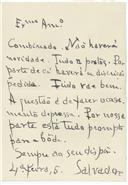 Exmo Amo
Combinado. Não haverá
novidade. Tudo a postos. Por
parte de cá haverá a discrição
pedida. Tudo vae bem.
A questão é de fazer
depressa. Por nossa
parte está tudo prompto
para a bôda.
Sempre ao seu dispor
4ª feira, 5. Salvador